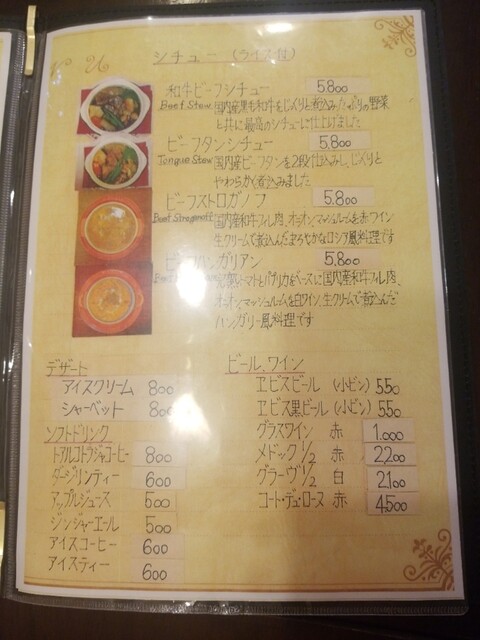 シチュー (ライス付)
和牛ビーフシチュー 5.800
Beef Stew 国内産黒毛和牛をじっくり煮込みたっぷりの野菜
と共に最高のシチューに仕上げました
ビーフタンシチュー 5.800
Tongue Stew 国内産ビーフタンを2段仕込みし、じっくりと
やわらかく煮込みました
ビーフストロガノフ 5.800
Beef Stroganoff 国内産和牛フィレ肉、オニオン、マッシュルームを赤ワイン
生クリームで煮込んだまろやかなロシア風料理です
ハンガリアン 5.800
完熟トマトとパプリカをベースに国内産和牛フィレ肉、
オニオン、マッシュルームを白ワイン、生クリームで煮込んだ
ハンガリー風料理です
デザート
アイスクリーム 800
シャーベット 800
ソフトドリンク
トアルコトラジャコーヒー 800
ダージリンティー 600
アップルジュース 500
ジンジャエール 500
アイスコーヒー 600
アイスティー 600
ビール、ワイン
ヱビスビール (小ビン) 550
ヱビス黒ビール (小ビン) 550
グラスワイン 赤 1.000
メドック 1/2 赤 2.200
グラーヴ 1/2 白 2.100
コート・デュ・ローヌ 赤 4.500